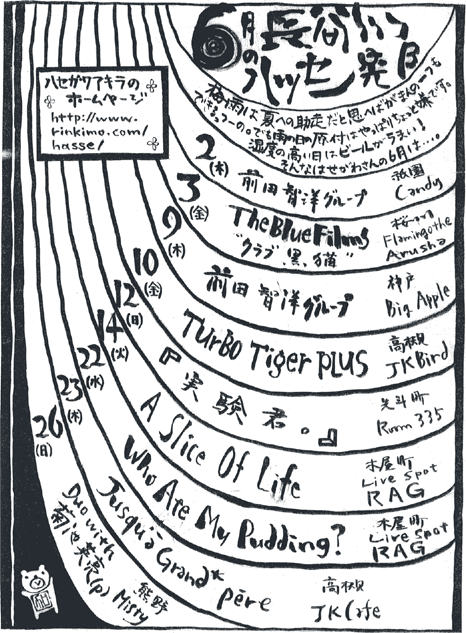 6月
の
長谷川
ハッセン発日
ハセガワアキラの
ホームページ
http://www.
rinkimo.com/
hasse/
梅雨は夏への助走だと思へばがまんの一つも
できるっつーの。でも雨の日の
湿度の高い日はビールがうまい!
そんなはせがわさんの6月は…。
2(木) 前田智洋グループ 祇園 Candy
3(金) The Blue Films "クラブ黒猫" Flamingo the Arusha
9(木) 前田智洋グループ 神戸 Big Apple
10(金) Turbo Tiger Plus 高槻 JK Bird
12(日) 『実験君。』 先斗町 Room 335
14(火) A Slice Of Life 木屋町 Live Spot RAG
22(水) Who Ate My Pudding? 木屋町 Live Spot RAG
23(木) Jusqu'à Grand père 高槻 JK Cafe
26(日) Duo with 菊池英亮(p) 熊野 Misty